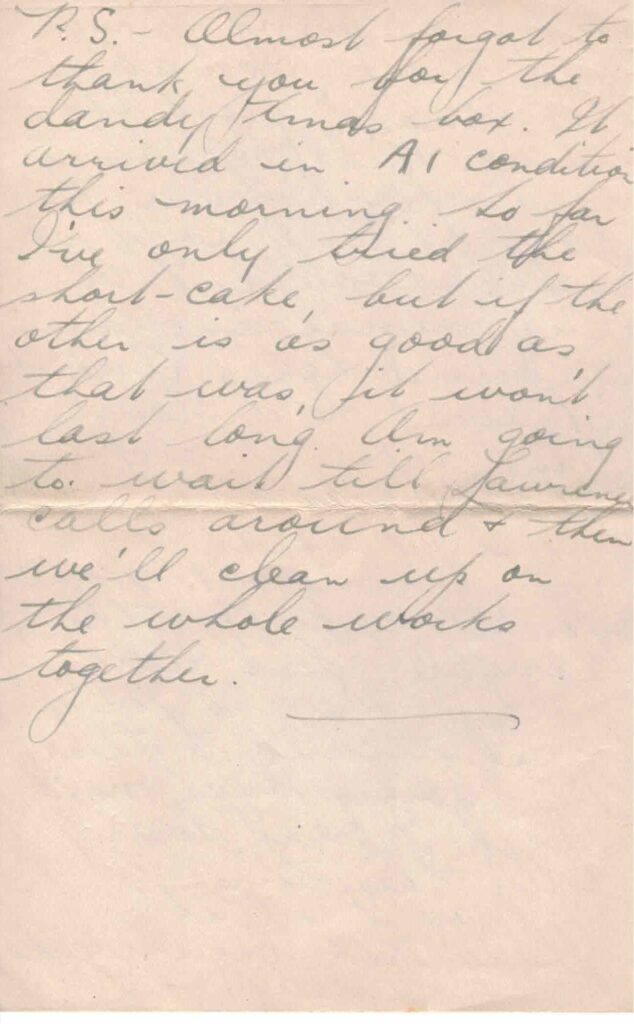 P.S. - Almost forgot to
thank you for the
dandy Xmas box. It
arrived in A1 condition
this morning. So far
I've only tried the
short-cake, but if the
other is as good as
that was, it won't
last long. Am going
to wait till Lawrence
calls around & then
we'll clean up on
the whole works
together.